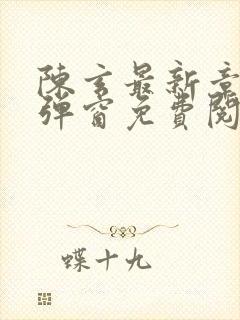 陳玄最新章
彈窗免費閱
蝶十九